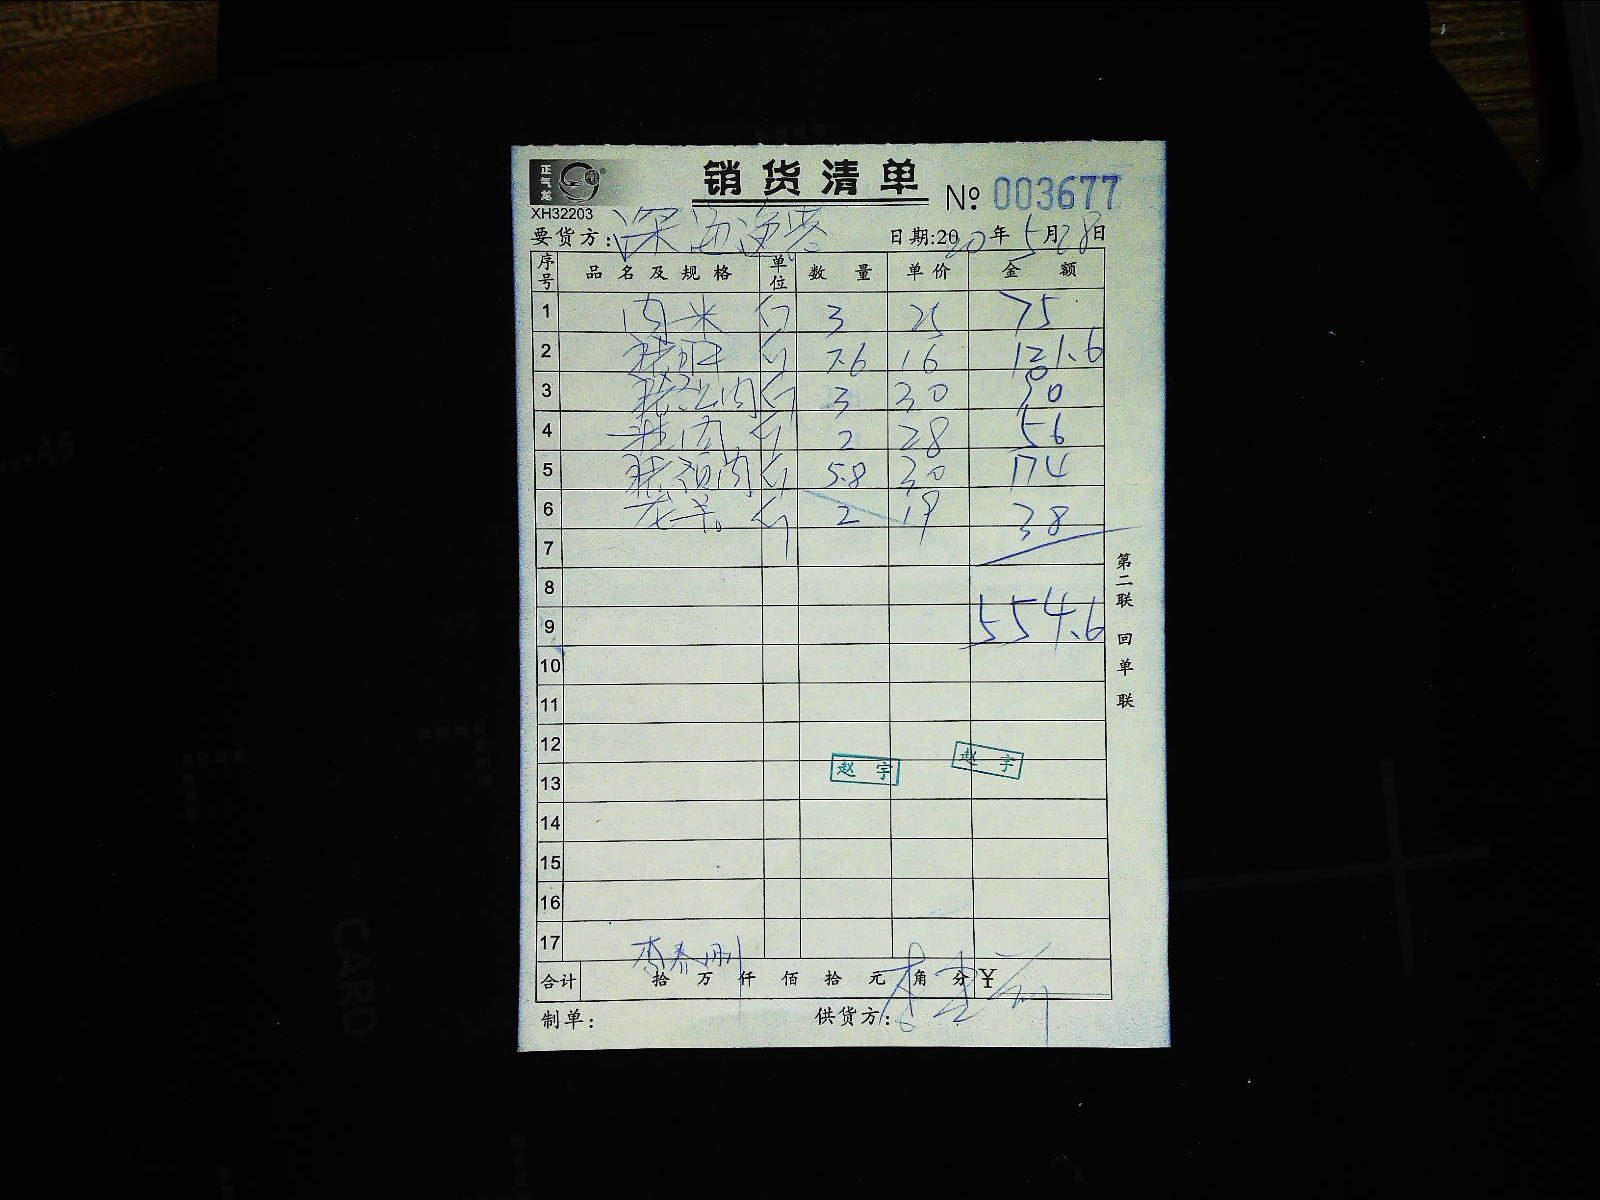 正气龙
销货清单
№ 003677
XH32203
要货方: 深海渔港 日期:2020年5月28日
序号 品名及规格 单位 数量 单价 金额
1 肉米 斤 3 25 75
2 猪肝 斤 7.6 16 121.6
3 肉 斤 3 30 90
4 肉 斤 2 28 56
5 肉 斤 5.8 30 174
6 斤 2 19 38
7
8
9 554.6
10
11
12
13
赵宇 赵宇
14
15
16
17
李春刚
合计 拾 万 仟 佰 拾 元 角 分 ¥
制单: 供货方:
第二联 回单联
CARD
A5